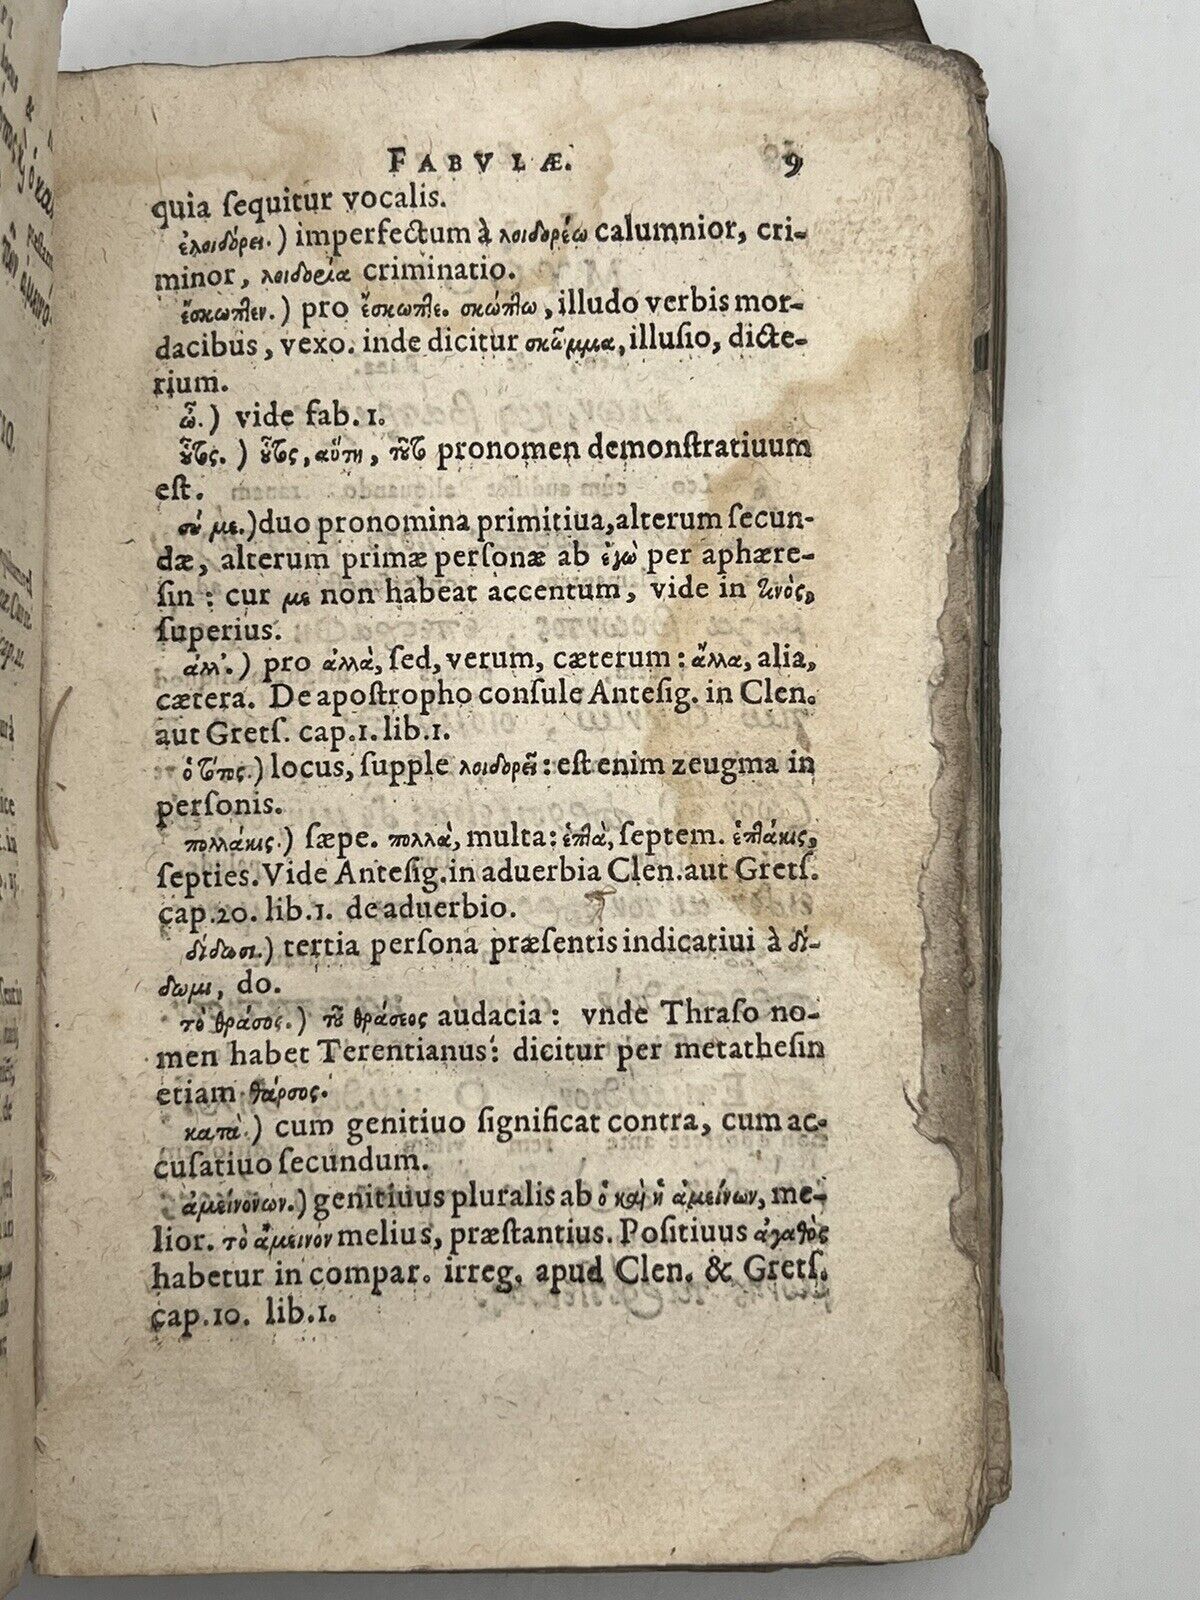 FABVLÆ. 9
quia ſequitur vocalis.
ἐλοιδόρει.) imperfectum à λοιδορέω calumnior, cri-
minor, λοιδορία criminatio.
ἔσκωπτεν.) pro ἔσκωπτε. σκώπτω, illudo verbis mor-
dacibus, vexo. inde dicitur σκῶμμα, illuſio, dicte-
rium.
ὦ.) vide fab. 1.
οὗτος.) οὗτος, αὕτη, τοῦτο pronomen demonſtratiuum
eſt.
σύ με.) duo pronomina primitiua, alterum ſecun-
dæ, alterum primæ perſonæ ab ἐγὼ per aphære-
ſin: cur με non habeat accentum, vide in τινὸς,
ſuperius.
ἀλλ'.) pro ἀλλὰ, ſed, verum, cæterum: ἄλλα, alia,
cætera. De apoſtropho conſule Anteſig. in Clen.
aut Gretſ. cap.1. lib.1.
ὁ τόπος.) locus, ſupple λοιδορεῖ: eſt enim zeugma in
perſonis.
πολλάκις.) ſæpe. πολλὰ, multa: ἑπτὰ, ſeptem. ἑπτάκις,
ſepties. Vide Anteſig. in aduerbia Clen. aut Gretſ.
cap.20. lib.1. de aduerbio.
δίδωσι.) tertia perſona præſentis indicatiui à δί-
δωμι, do.
τὸ θράσος.) τοῦ θράσεος audacia: vnde Thraſo no-
men habet Terentianus: dicitur per metatheſin
etiam θάρσος.
κατὰ.) cum genitiuo ſignificat contra, cum ac-
cuſatiuo ſecundum.
ἀμεινόνων.) genitiuus pluralis ab ὁ καὶ ἡ ἀμείνων, me-
lior. τὸ ἄμεινον melius, præſtantius. Poſitiuus ἀγαθὸς
habetur in compar. irreg. apud Clen. & Gretſ.
cap.10. lib.1.